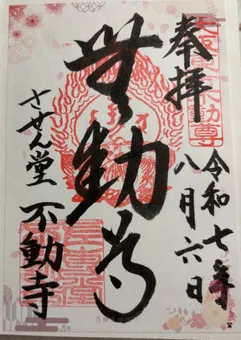 奉拝
令和七年
八月六日
無動尊
させん堂
不動寺